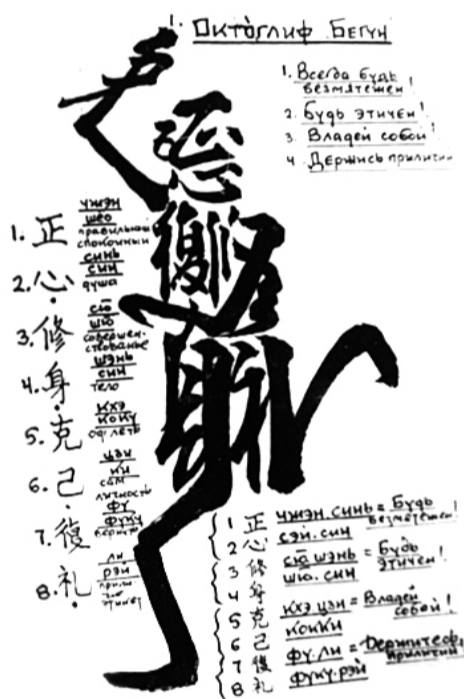 1. Октоглиф Бегун
1. Всегда будь
безмятежен!
2. Будь этичен!
3. Владей собой!
4 Держись
1. 正
правильный
спокойный
2. 心
синь
син
душа
3. 修
сю
шю
совершен-
ствованье
4. 身
шэнь
син
тело
5. 克
кхэ
коку
одолеть
6. 己
цзи
ки
сам
личность
7. 復
фу
фуку
8. 礼
ли
рэй
этикет
1 正 чжэн.синь = Будь
безмятежен!
сэй.син
2 心
3 修 сю шэнь = Будь
этичен!
4 身 шю.син
5 克 кхэ цзи = Владей
собой!
6 己 кокки
7 復 фу.ли =
8 礼 фуку.рэй